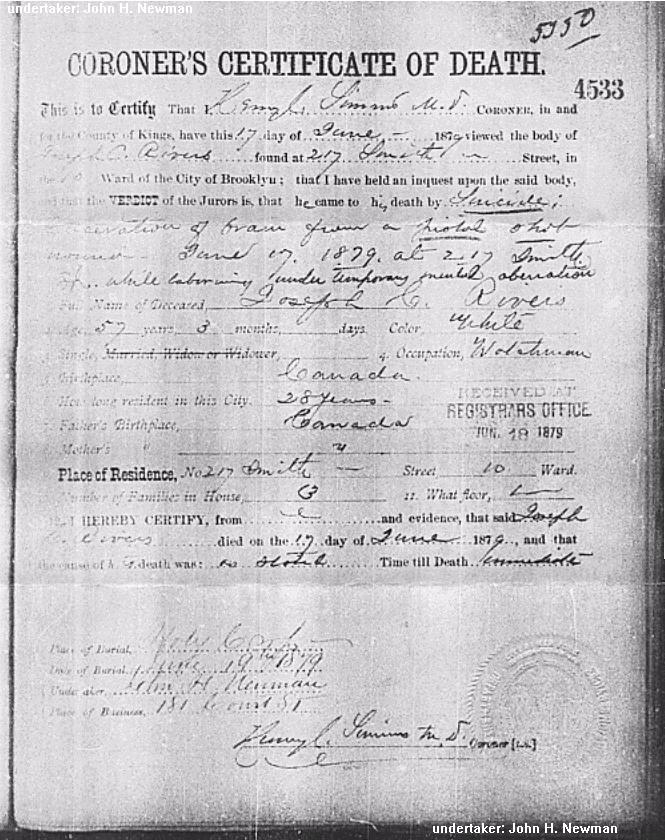 undertaker: John H. Newman
5350
CORONER'S CERTIFICATE OF DEATH.
4533
This is to Certify That I, Henry C. Simms M.D. CORONER, in and
for the County of Kings, have this 17 day of June 1879 viewed the body of
Joseph C. Rivers found at 217 Smith Street, in
the 10 Ward of the City of Brooklyn; that I have held an inquest upon the said body,
and that the VERDICT of the Jurors is, that he came to his death by Suicide;
Laceration of brain from a pistol shot
wound June 17, 1879, at 217 Smith
St. while laboring under temporary mental aberation
Full Name of Deceased, Joseph C. Rivers
Age, 57 years, 3 months, days. Color, White
Single, Married, Widow or Widower, 4. Occupation, Watchman
Birthplace, Canada.
How long resident in this City. 28 years
RECEIVED AT
REGISTRARS OFFICE.
JUN. 18 1879
Father's Birthplace, Canada
Mother's " "
Place of Residence, No 217 Smith Street, 10 Ward.
Number of Families in House, 3 11. What floor, 1
I HEREBY CERTIFY, from and evidence, that said Joseph
C. Rivers died on the 17 day of June 1879, and that
the cause of his death was: as stated Time till Death immediate
Place of Burial, Holy Cross
Date of Burial, June 19th 1879
Undertaker, John H. Newman
Place of Business, 181 Court St
Henry C. Simms M.D. Coroner [L.S.]
undertaker: John H. Newman